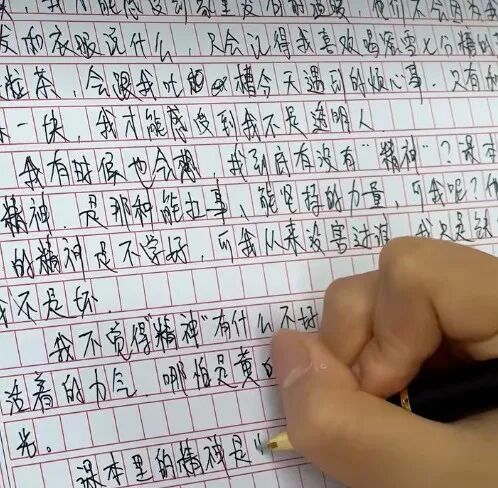 才能感受到
的衣服说什么，只会记得我喜欢喝茶雪七分糖的
茶，会跟我吐槽今天遇到的烦心事。只有
一块，我才能感受到我不是透明人
我有时候也会想，我到底有没有"精神"？课本
精神，是那种能扛事、能坚持的力量，可我呢？
的精神是不学好，可我从来没害过谁，我只是
我不是坏
我不觉得"精神"有什么不好
活着的力气，哪怕是黄
光。
课本里的精神是